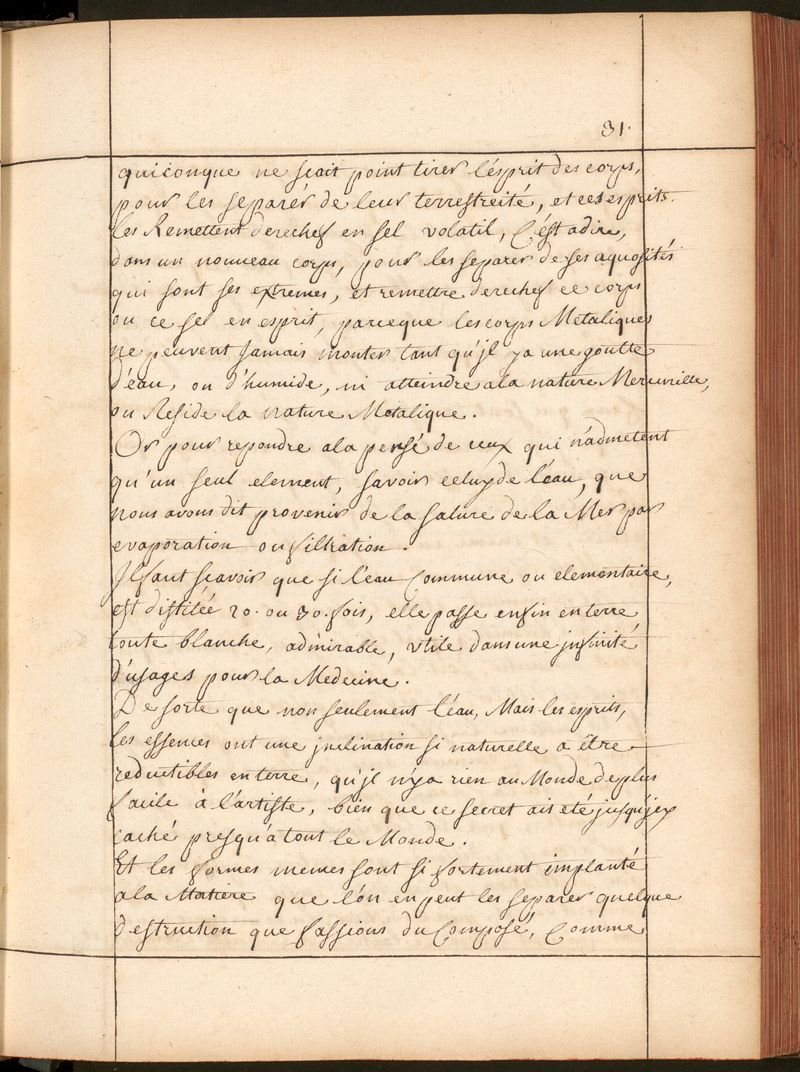 31.
quiconque ne scait point tirer l'esprit des corps,
pour les separér de leur terrestreité, et ces esprits.
les Remettent derechef en sel volatil, C'est adire,
dans un nouveau corps, pour les separer de ses aquosités
qui sont ses extremes, et remettre derechef ce corps
ou ce sel en esprit, parceque les corps Metaliques
ne peuvent Jamais monter tant qu'jl ya une goutte
d'eau, ou d'humide, ni atteindre ala nature Mercurielle,
ou Reside la nature Metalique.
Or pour repondre ala pensé de ceux qui n'admetent
qu'un seul element, savoir celuy de l'eau, que
nous avons dit provenir de la salure de la Mer par
evaporation ou filtration.
Jl faut scavoir que si l'eau Commune ou elementaire,
est distilée 20. ou 30. fois, elle passe enfin en terre
toute blanche, admirable, vtile dans une jnfinité
d'usages pour la Medecine.
De sorte que non seulement l'eau, Mais les esprits,
les essences ont une jnclination si naturelle a être
reductibles en terre, qu'jl n'ya rien au Monde de plus
facile à l'artiste, bien que ce secret ait eté jusqu'jcy
caché presqu'a tout le Monde.
Et les formes memes sont si fortement implanté
ala Matiere que l'on en peut les separer quelque
destruction que fassions du Composé, Comme